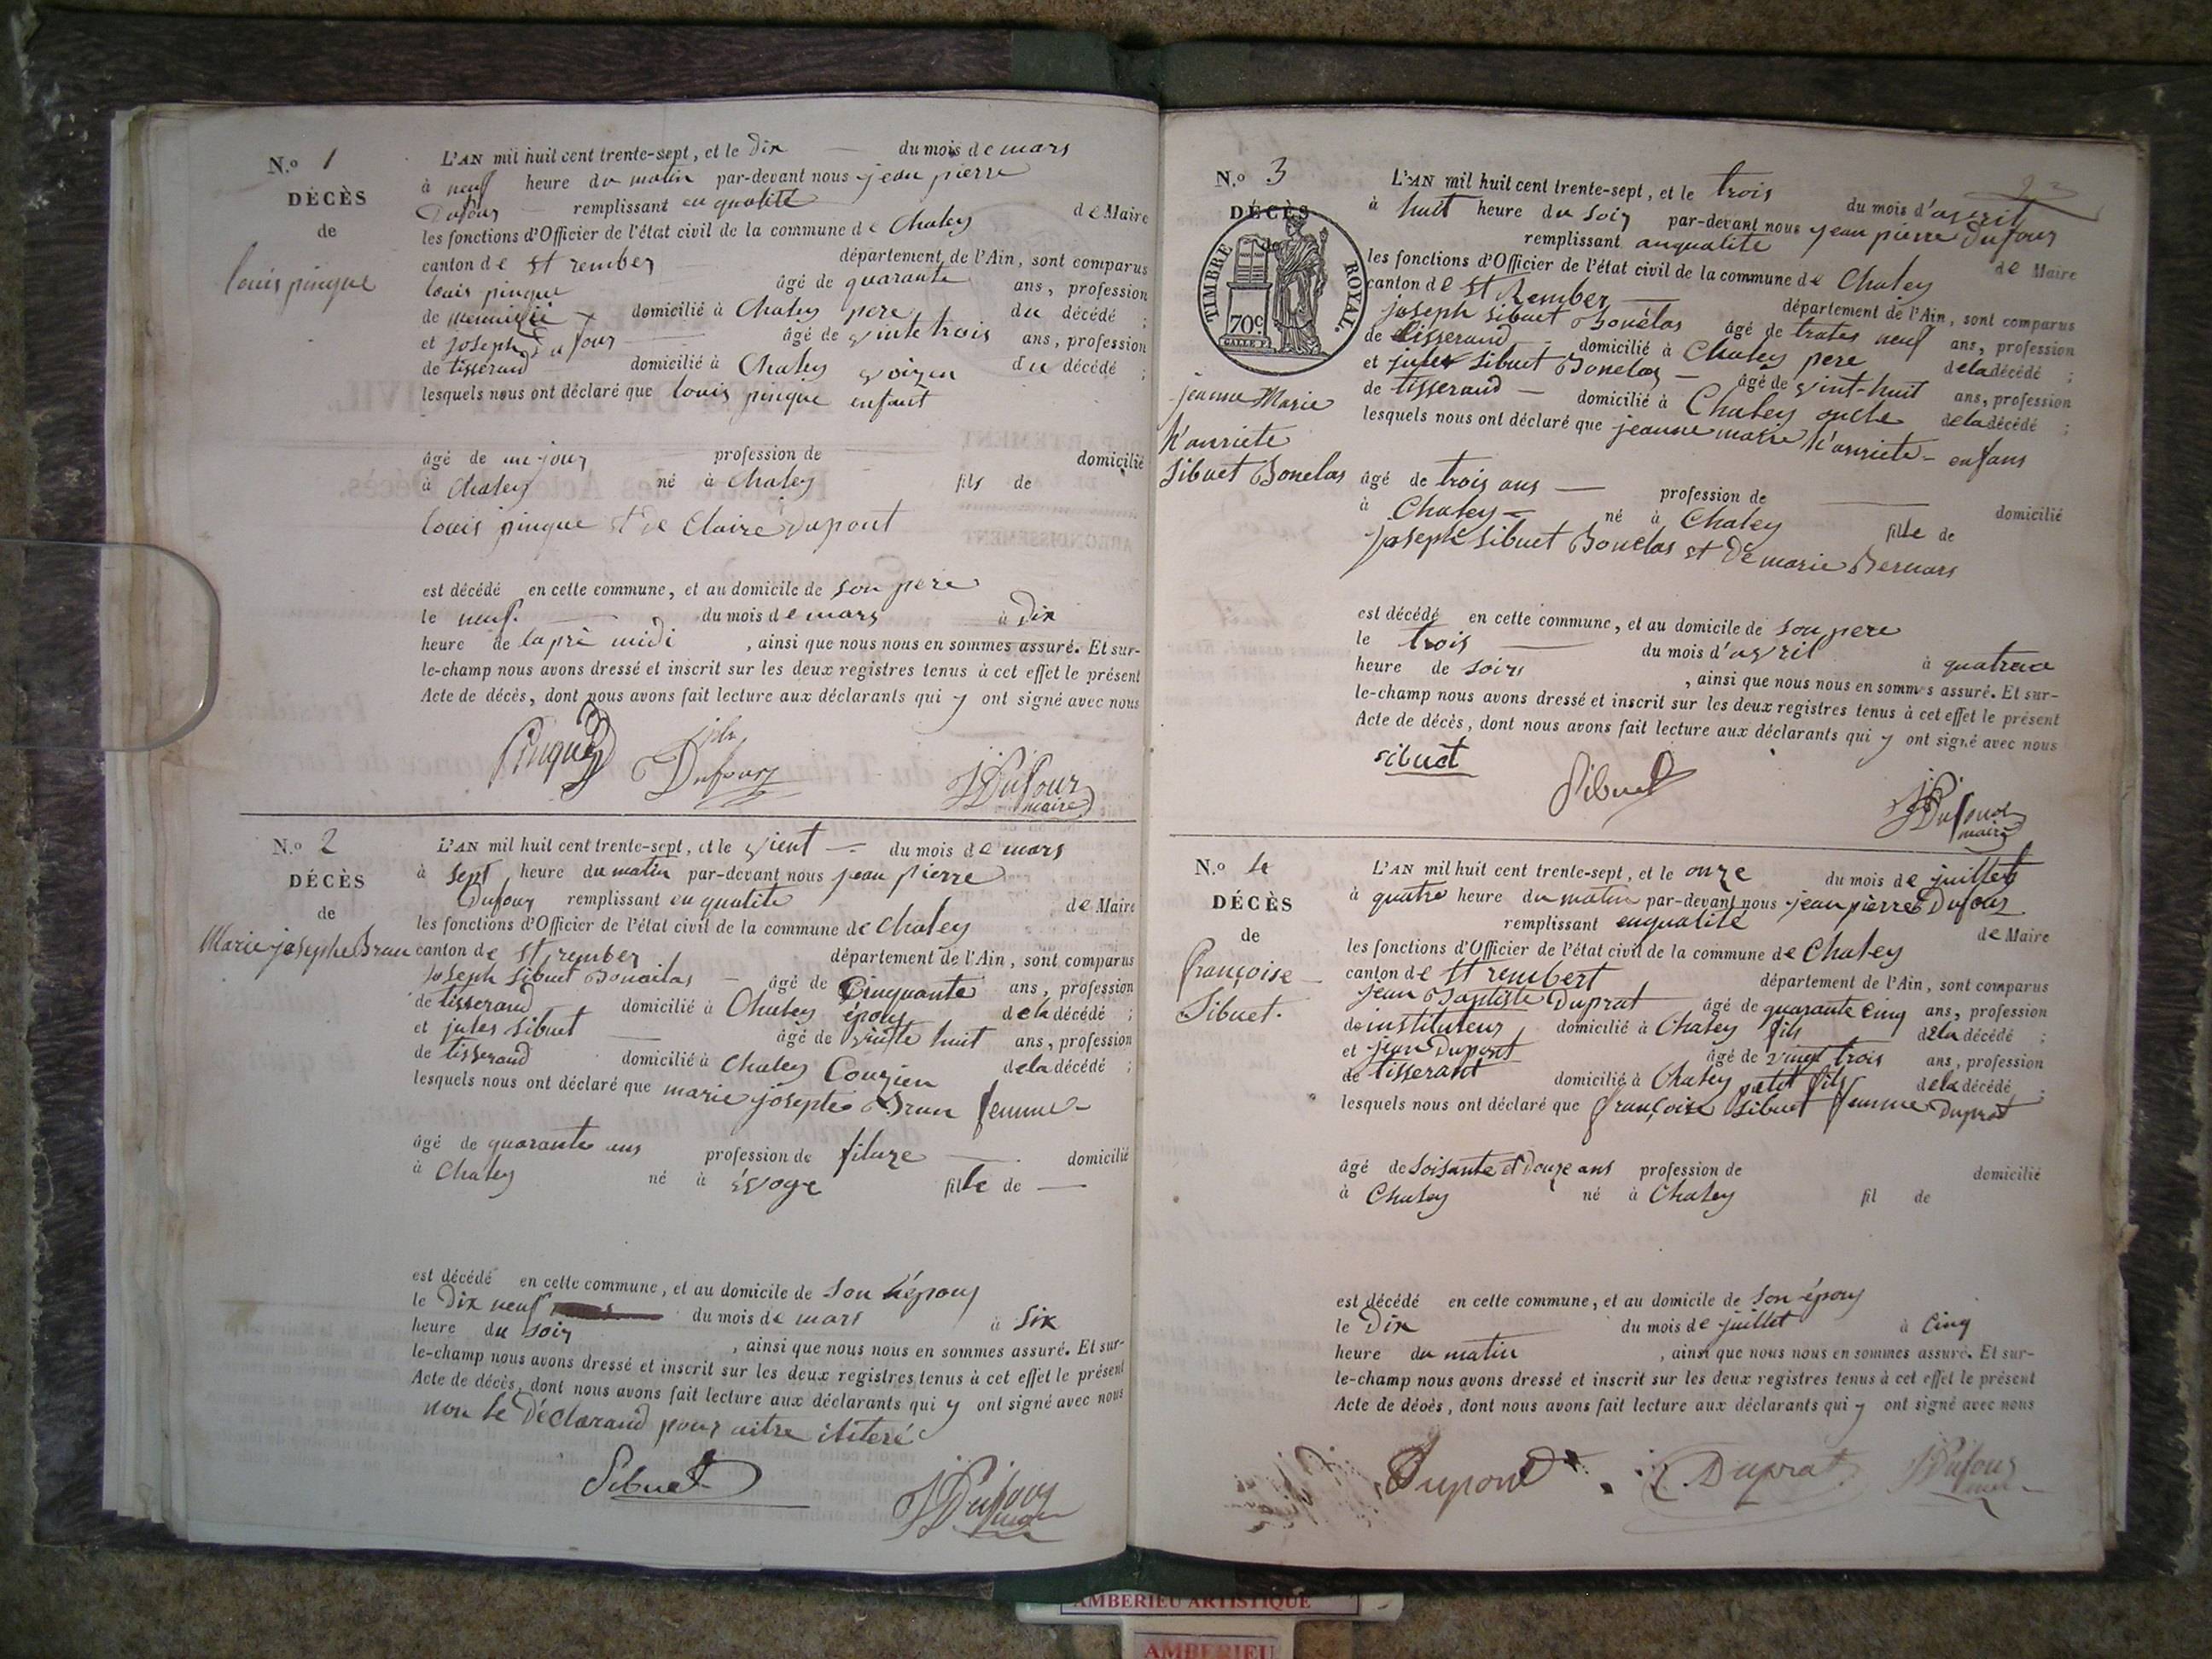 N.o 1
DÉCÈS
de
louis pinque
L'AN mil huit cent trente-sept, et le dix — du mois de mars
à neuf heure du matin par-devant nous jean pierre
Dufour — remplissant en qualité de Maire
les fonctions d'Officier de l'état civil de la commune de Chaley
canton de St rember département de l'Ain, sont comparus
louis pinque âgé de quarante ans, profession
de domicilié à Chaley pere du décédé ;
et joseph Dufour — âgé de vinte trois ans, profession
de tisserand — domicilié à Chaley voizin du décédé ;
lesquels nous ont déclaré que louis pinque enfant
âgé de un jour profession de — domicilié
à Chaley né à Chaley fils de
louis pinque et de Claire Dupont
est décédé en cette commune, et au domicile de son pere
le neuf — du mois de mars à Dix
heure de laprè midi , ainsi que nous nous en sommes assuré. Et sur-
le-champ nous avons dressé et inscrit sur les deux registres tenus à cet effet le présent
Acte de décès, dont nous avons fait lecture aux déclarants qui y ont signé avec nous
Pinque Dufour JPDufour
maire
N.o 2
DÉCÈS
de
Marie josephe Brun
L'AN mil huit cent trente-sept, et le vient — du mois de mars
à sept heure du matin par-devant nous jean pierre
Dufour remplissant en qualité de Maire
les fonctions d'Officier de l'état civil de la commune de Chaley
canton de St rember département de l'Ain, sont comparus
joseph Sibuet — âgé de Cinquante ans, profession
de tisserand domicilié à Chaley épouy de la décédé ;
et jules Sibuet — âgé de huit ans, profession
de tisserand domicilié à Chaley Couzien de la décédé ;
lesquels nous ont déclaré que marie josepte Brun femme —
âgé de quarante ans profession de filuze — domicilié
à Chaley né à évoge fille de —
est décédé en cette commune, et au domicile de son épouy
le Dix neuf du mois de mars à Six
heure du soir , ainsi que nous nous en sommes assuré. Et sur-
le-champ nous avons dressé et inscrit sur les deux registres tenus à cet effet le présent
Acte de décès, dont nous avons fait lecture aux déclarants qui y ont signé avec nous
non le Déclarand pour aitre iliteré
Sibuet JPDufour
N.o 3
DÉCÈS
TIMBRE ROYAL.
70c
jeanne Marie
h'anriete
Sibuet Bonelas
L'AN mil huit cent trente-sept, et le trois du mois d'avril
à huit heure du soir par-devant nous jean pierre Dufour
remplissant enqualité de Maire
les fonctions d'Officier de l'état civil de la commune de Chaley
canton de St Rember — département de l'Ain, sont comparus
joseph Sibuet Bonelas âgé de trate neuf ans, profession
de tisserand — domicilié à Chaley pere de la décédé ;
et jules Sibuet Bonelas — âgé de vint-huit ans, profession
de tisserand — domicilié à Chaley oncle de la décédé ;
lesquels nous ont déclaré que jeanne marie h'anriete — enfans
âgé de trois ans — profession de — domicilié
à Chaley — né à Chaley fille de
joseph Sibuet Bonelas et De marie Bernars
est décédé en cette commune, et au domicile de son pere
le trois — du mois d'avril à quatrau
heure de soire , ainsi que nous nous en sommes assuré. Et sur-
le-champ nous avons dressé et inscrit sur les deux registres tenus à cet effet le présent
Acte de décès, dont nous avons fait lecture aux déclarants qui y ont signé avec nous
sibuet Sibuet JPDufour
maire
N.o 4
DÉCÈS
de
françoise
Sibuet.
L'AN mil huit cent trente-sept, et le onze du mois de juillets
à quatre heure du matin par-devant nous jean pierre Dufour
remplissant enqualité de Maire
les fonctions d'Officier de l'état civil de la commune de Chaley
canton de St rembert département de l'Ain, sont comparus
jean Baptiste Duprat âgé de quarante cinq ans, profession
de instituteur domicilié à Chaley fils de la décédé ;
et jean Dupont âgé de vingt trois ans, profession
de tisserant domicilié à Chaley petit fils de la décédé ;
lesquels nous ont déclaré que françoise Sibuet femme Duprat
âgé de soisante et Douze ans profession de domicilié
à Chaley né à Chaley fil de
est décédé en cette commune, et au domicile de son épouy
le Dix du mois de juillet à Cinq
heure du matin , ainsi que nous nous en sommes assuré. Et sur-
le-champ nous avons dressé et inscrit sur les deux registres tenus à cet effet le présent
Acte de décès, dont nous avons fait lecture aux déclarants qui y ont signé avec nous
Dupont Duprat JPDufour
AMBERIEU ARTISTIQUE
AMBERIEU